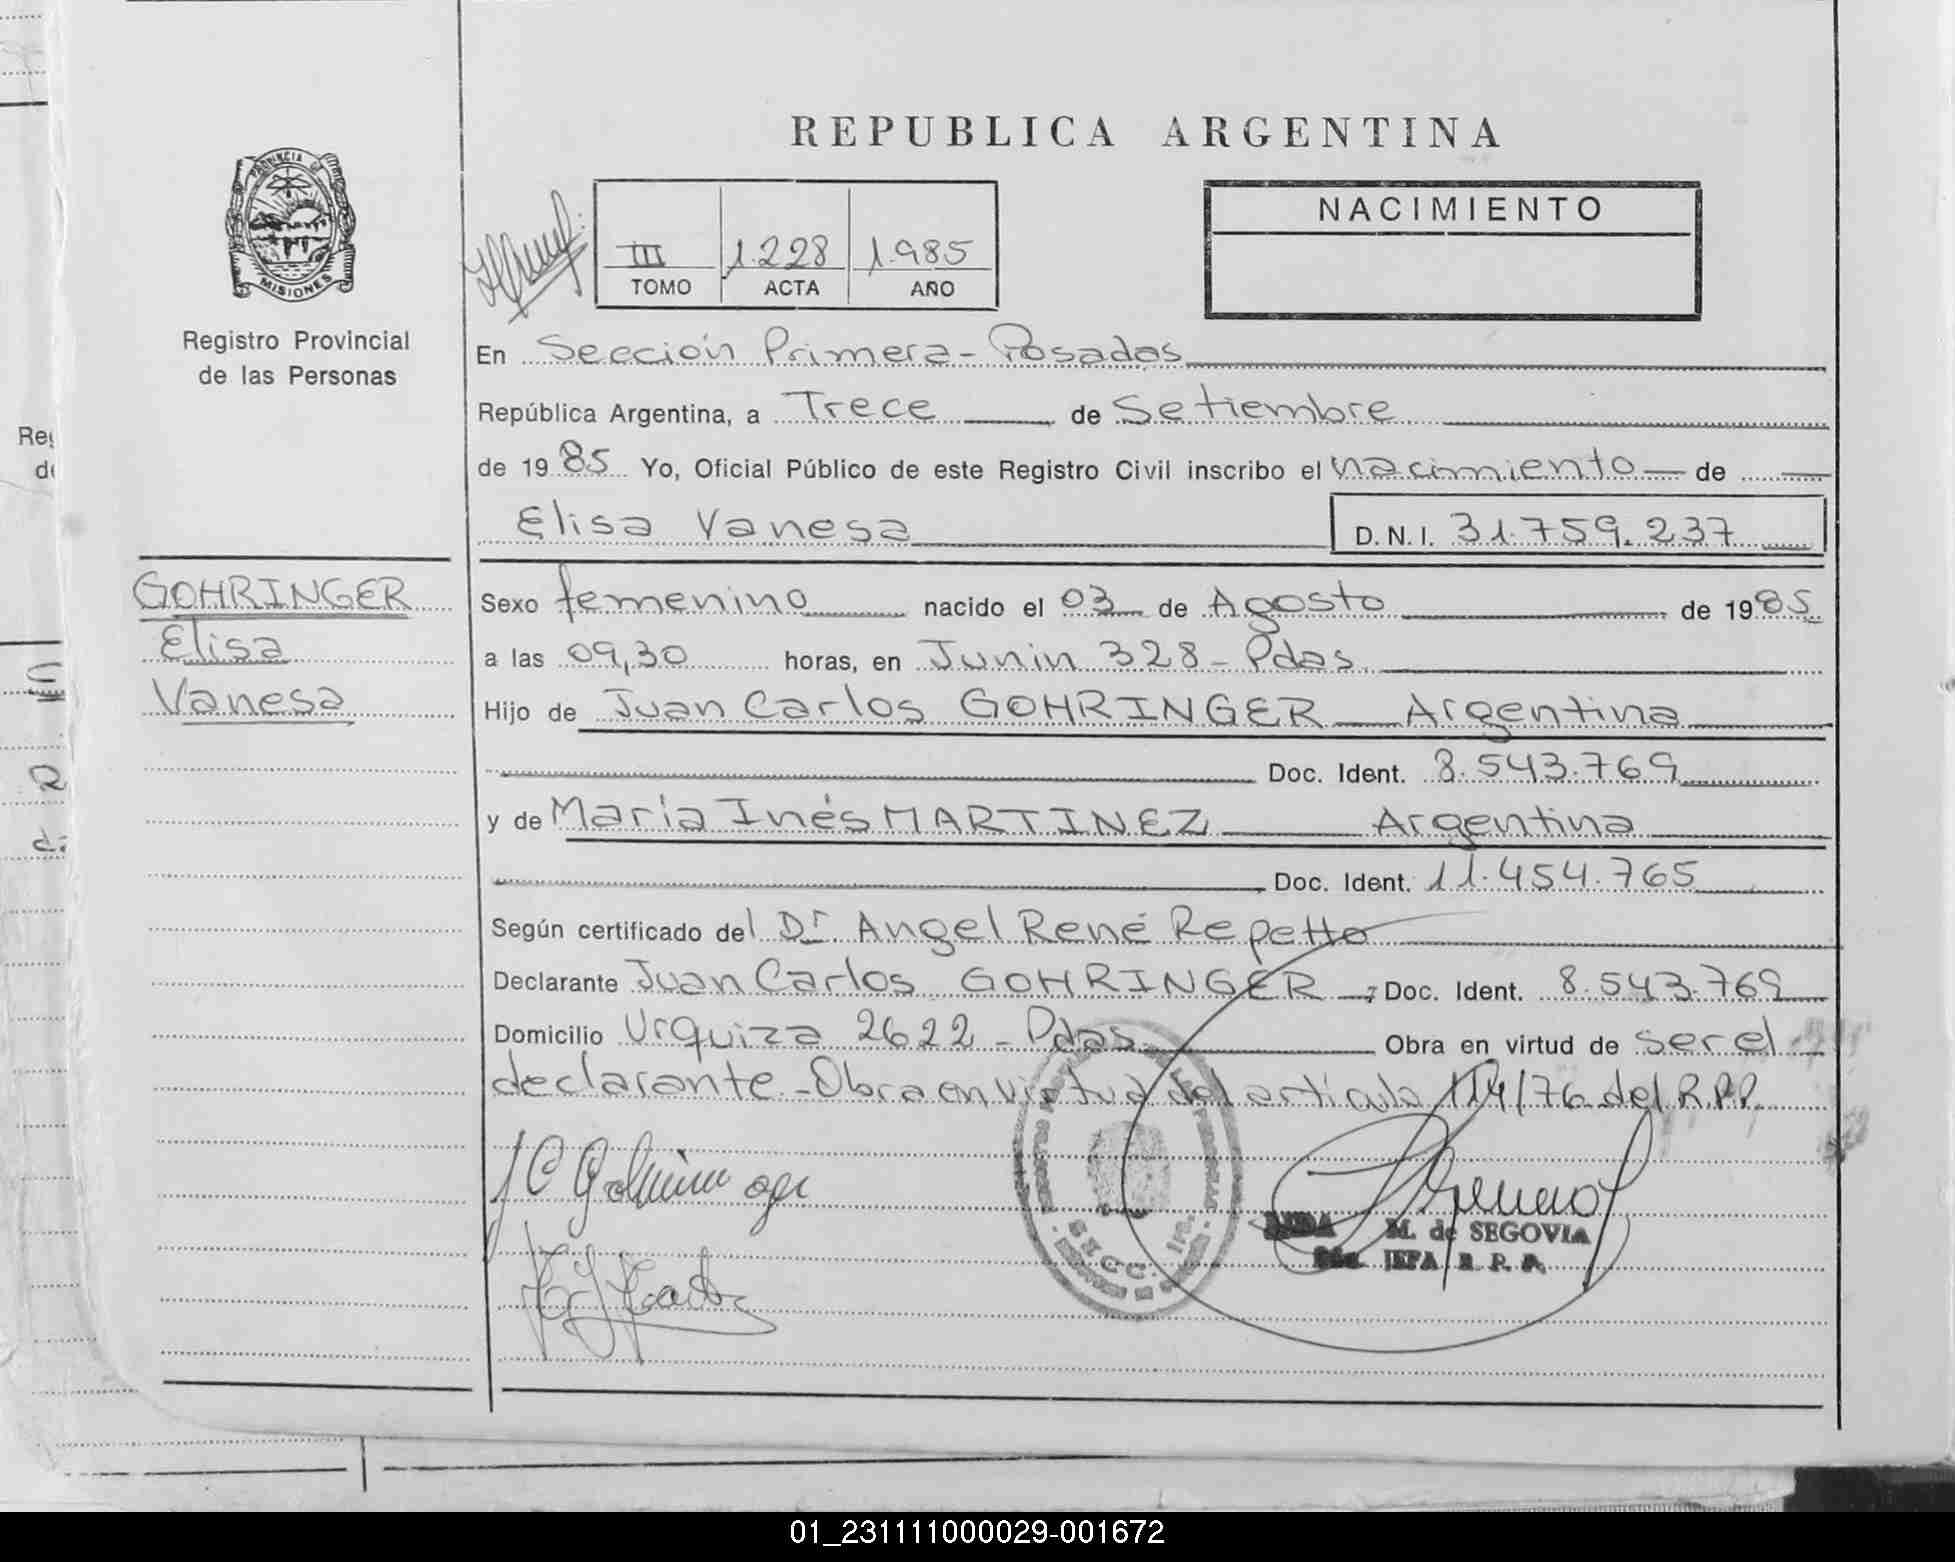 REPUBLICA ARGENTINA
PROVINCIA DE
MISIONES
Registro Provincial
de las Personas
III 1.228 1.985
TOMO ACTA AÑO
NACIMIENTO
En Sección Primera - Posadas
República Argentina, a Trece de Setiembre
de 1985 Yo, Oficial Público de este Registro Civil inscribo el nacimiento de
Elisa Vanesa D.N.I. 31.759.237
GOHRINGER
Elisa
Vanesa
Sexo femenino nacido el 03 de Agosto de 1985
a las 09,30 horas, en Junin 328 - Pdas.
Hijo de Juan Carlos GOHRINGER Argentina
Doc. Ident. 8.543.769
y de María Inés MARTINEZ Argentina
Doc. Ident. 11.454.765
Según certificado del Dr. Angel René Repetto
Declarante Juan Carlos GOHRINGER Doc. Ident. 8.543.769
Domicilio Urquiza 2622 - Pdas. Obra en virtud de ser el
declarante - Obra en virtud del artículo 114/76 del R.P.P.
SECC. 1ra.
M. de SEGOVIA
JEFA R. P. P.
01_231111000029-001672